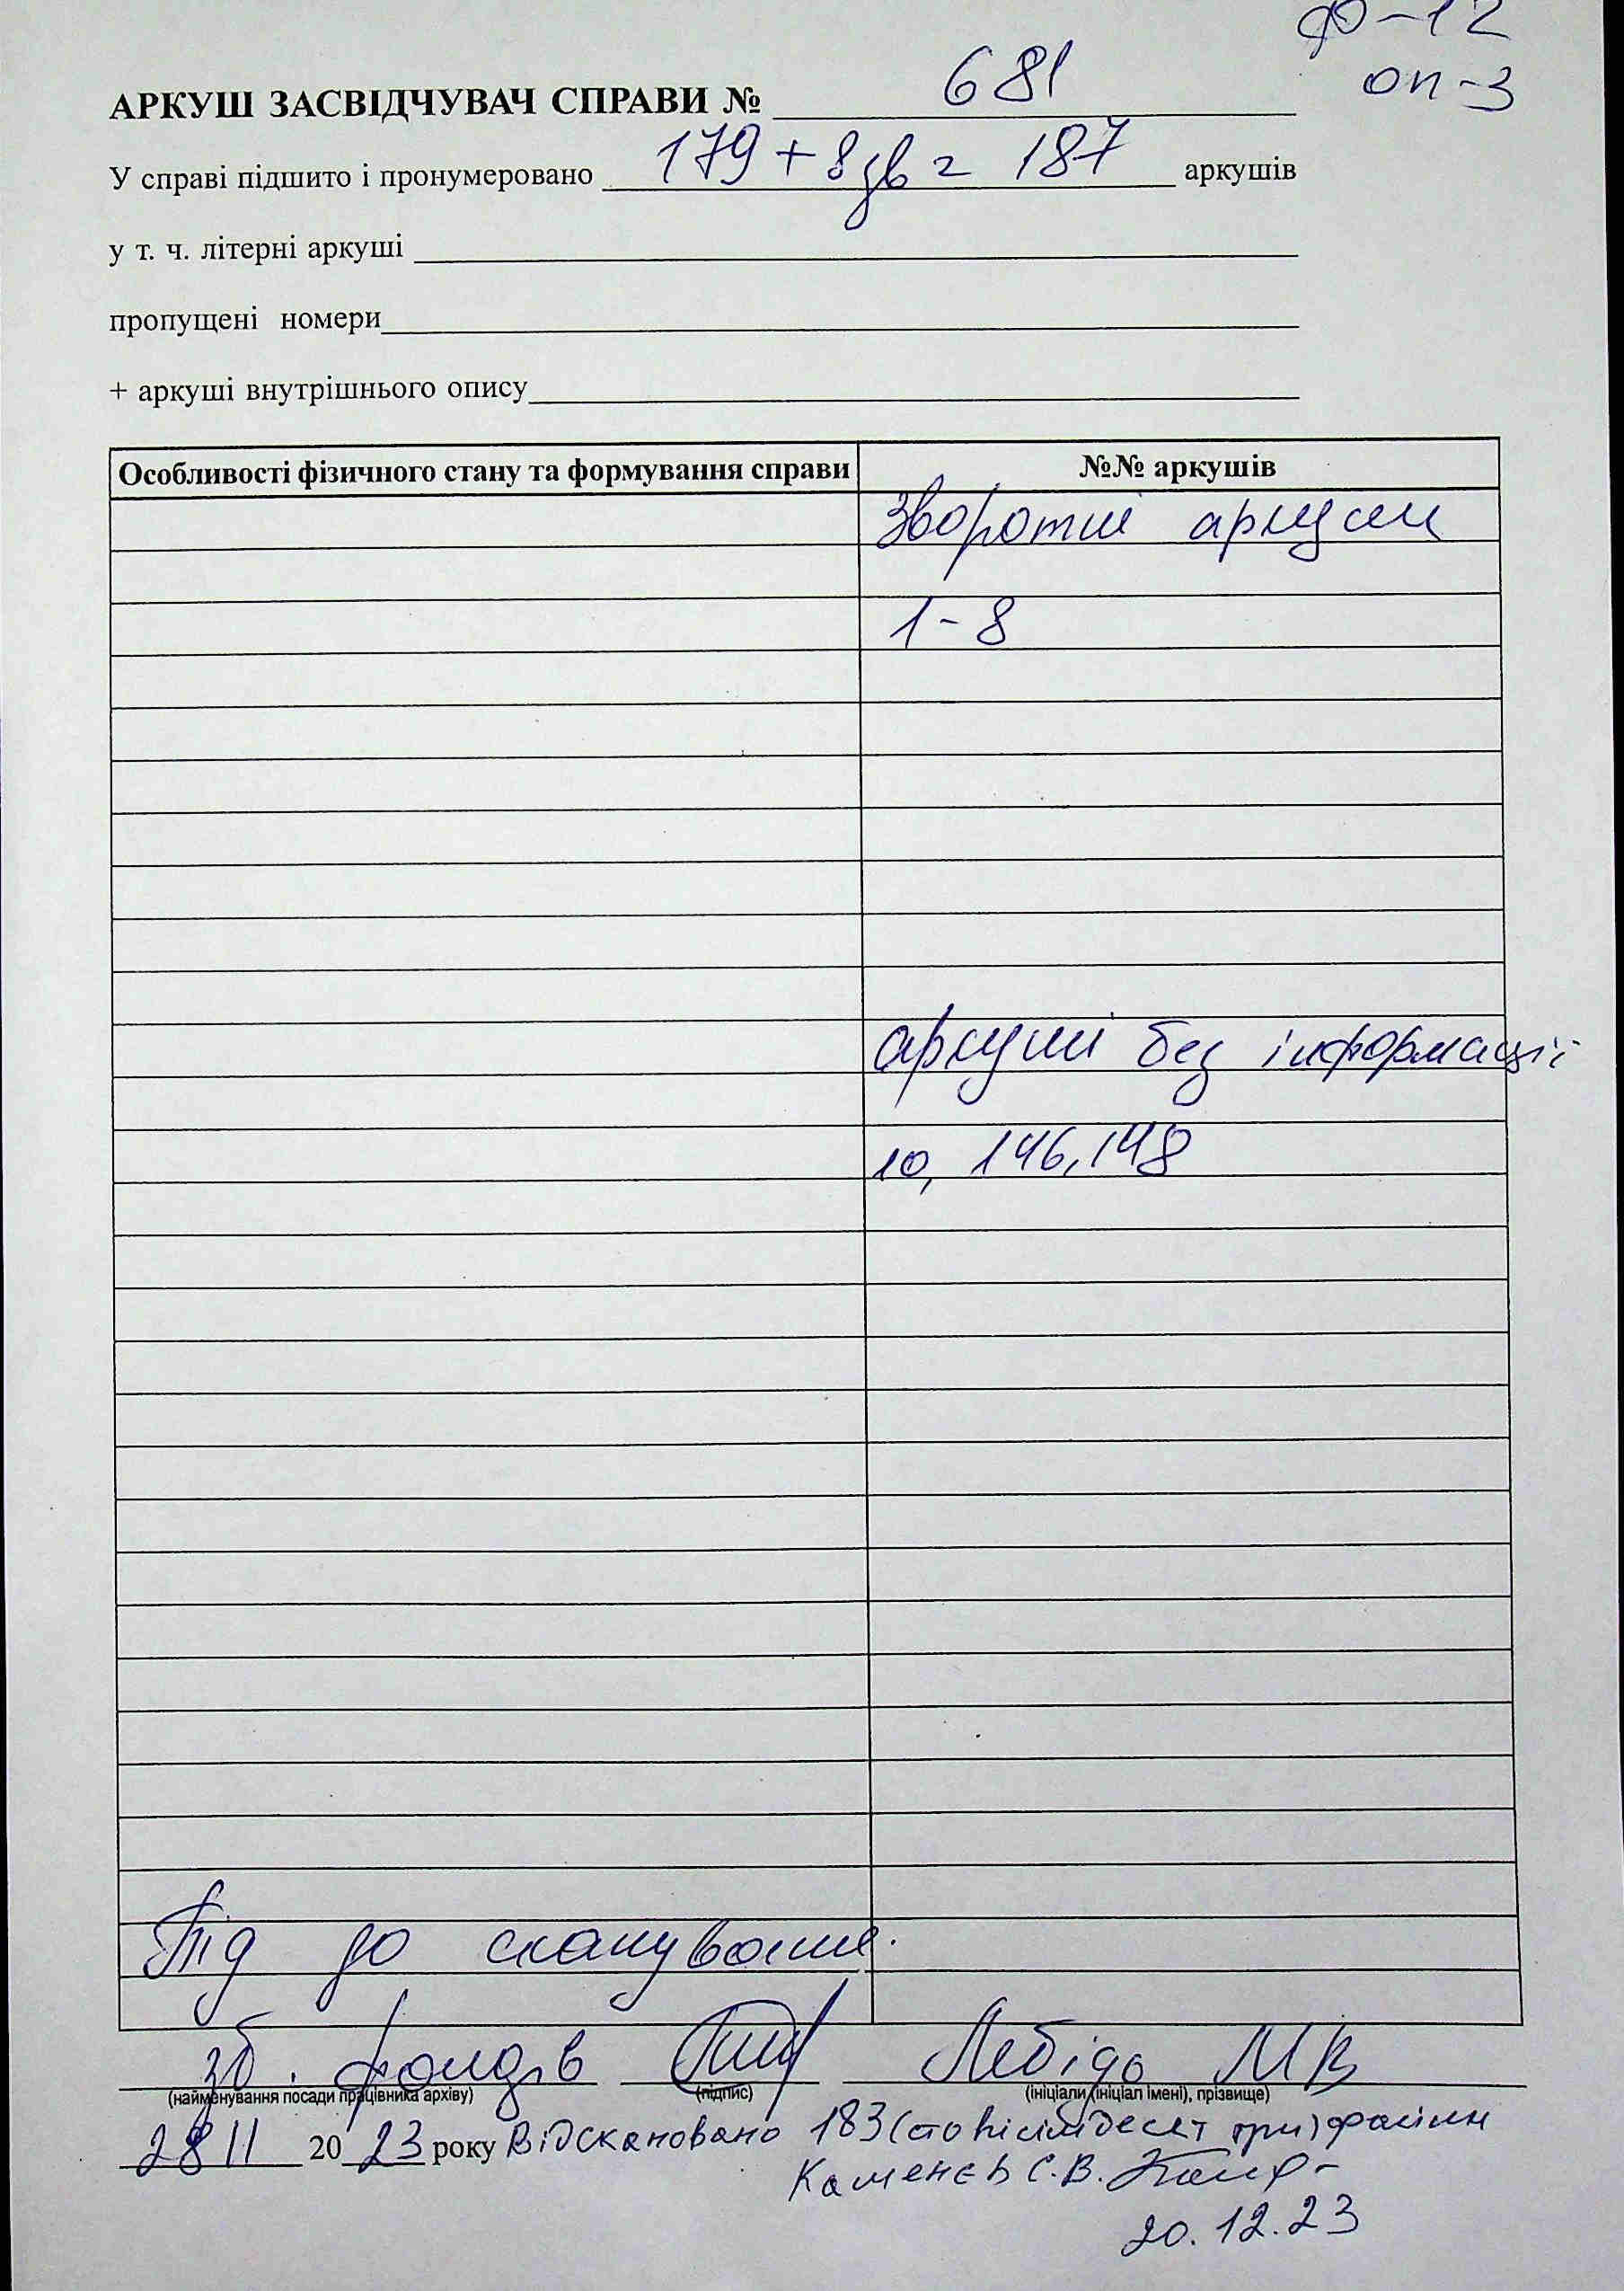 ф-12
оп-3
АРКУШ ЗАСВІДЧУВАЧ СПРАВИ № 681
У справі підшито і пронумеровано 179+8зв= 187 аркушів
у т. ч. літерні аркуші
пропущені номери
+ аркуші внутрішнього опису
Особливості фізичного стану та формування справи №№ аркушів
Зворотні аркуші
1-8
аркуші без інформації
10, 146, 148
Під до сканування.
зб. фондів Лебідь МВ
(найменування посади працівника архіву) (підпис) (ініціали (ініціал імені), прізвище)
28 11 20 23 року Відскановано 183 (сто вісімдесят три) файли
Каменєв С.В.
20.12.23